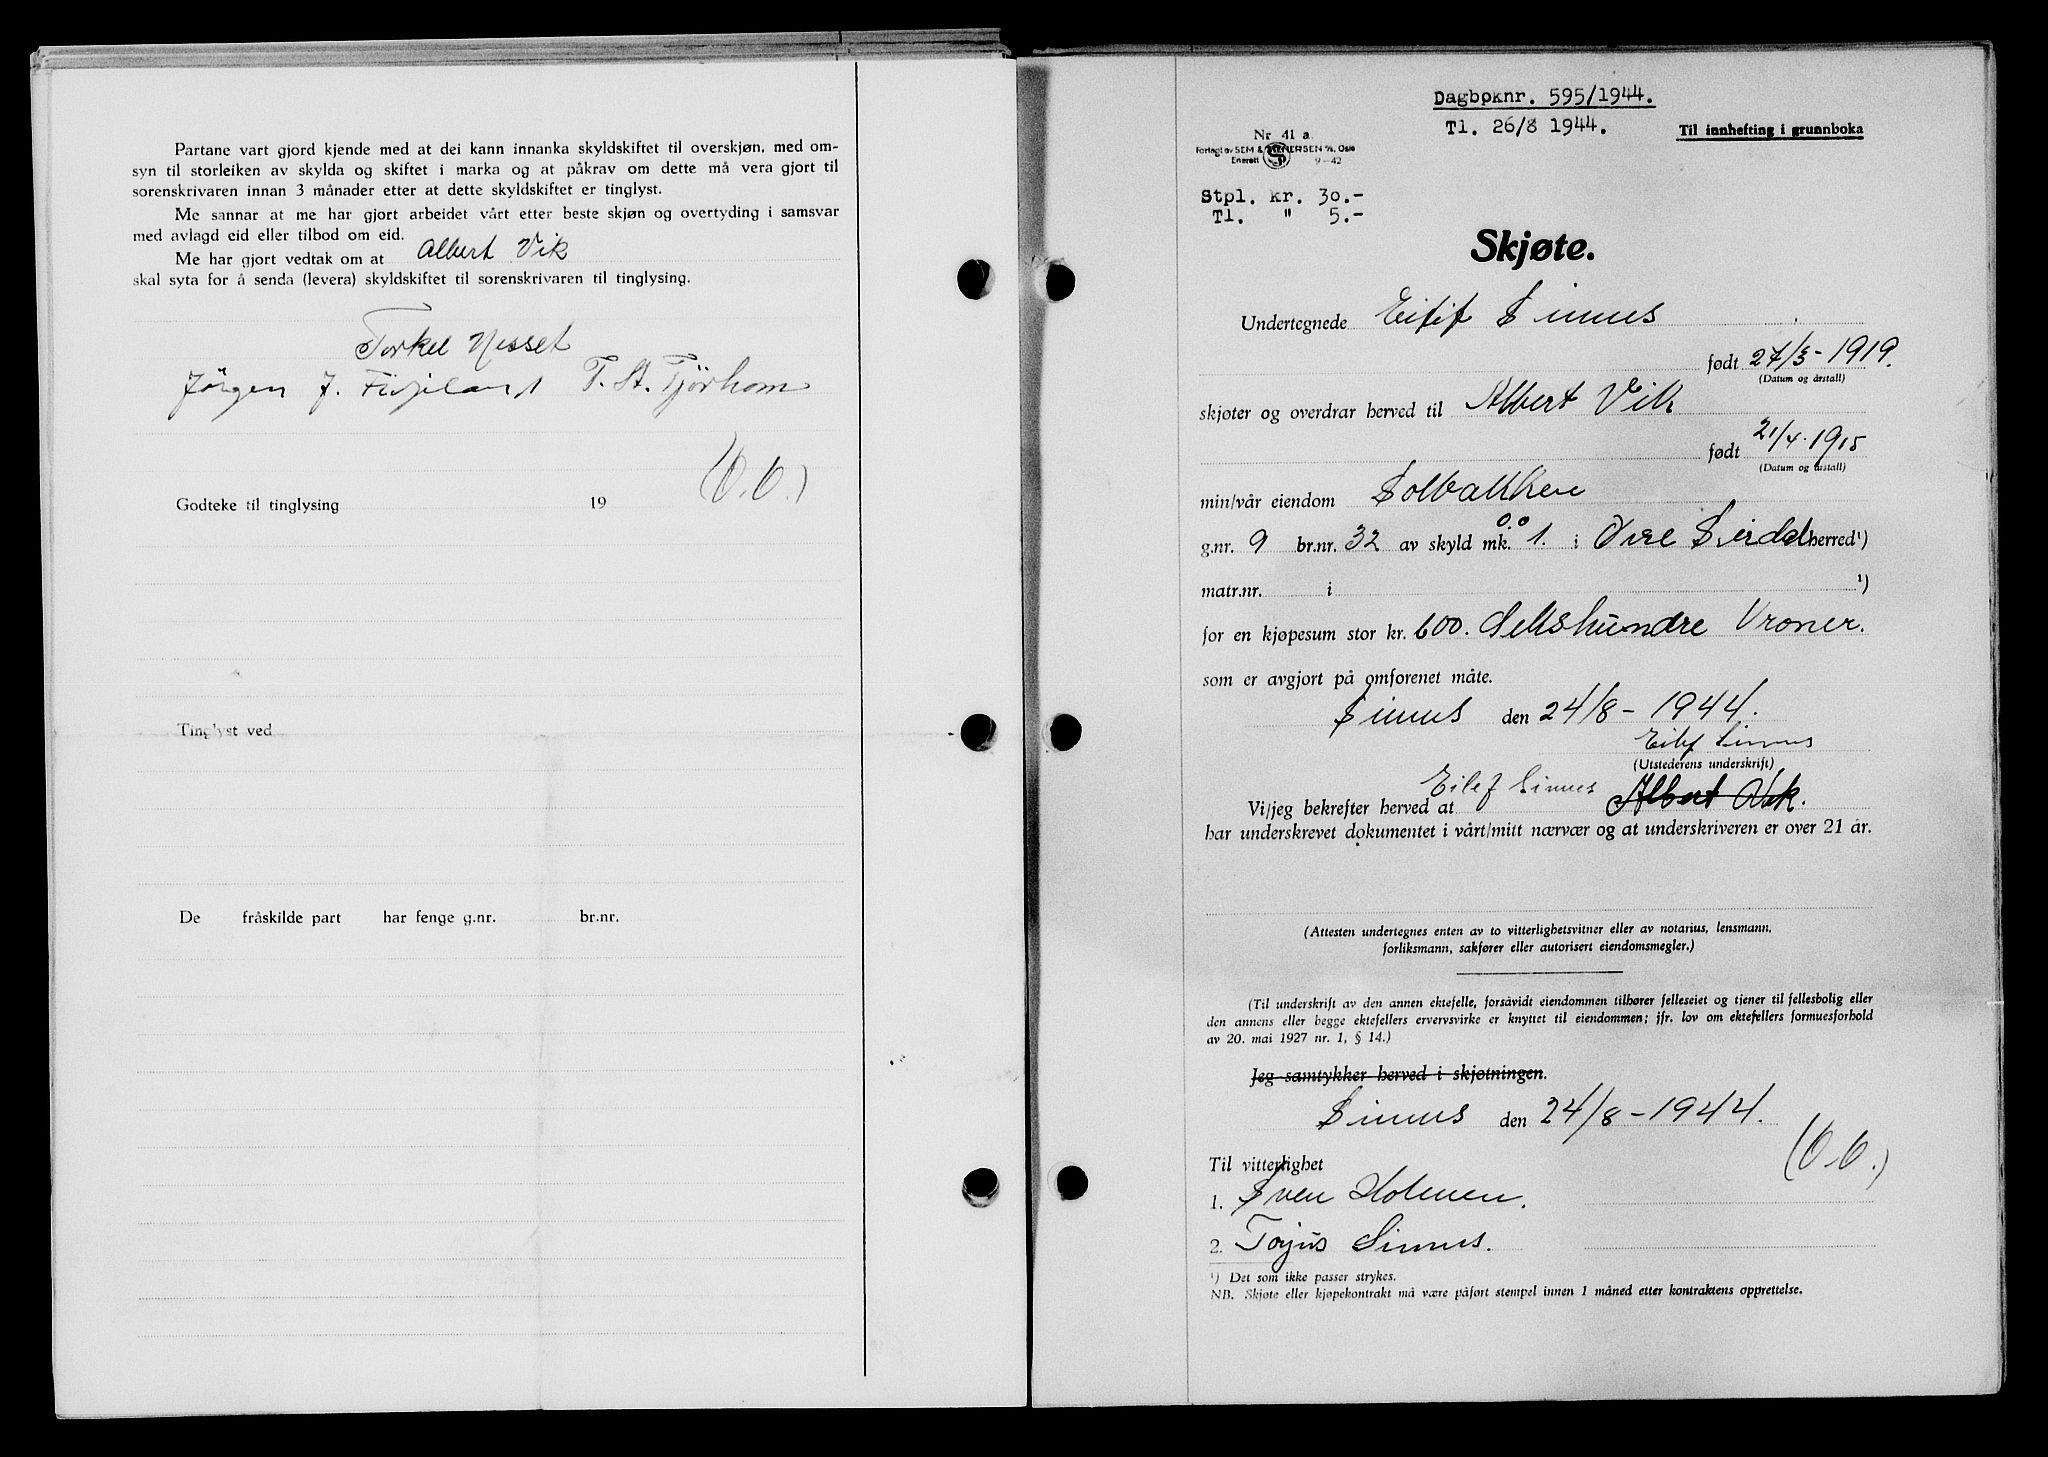 Partane vart gjord kjende med at dei kann innanka skyldskiftet til overskjøn, med om-
syn til storleiken av skylda og skiftet i marka og at påkrav om dette må vera gjort til
sorenskrivaren innan 3 månader etter at dette skyldskiftet er tinglyst.
Me sannar at me har gjort arbeidet vårt etter beste skjøn og overtyding i samsvar
med avlagd eid eller tilbod om eid.
Me har gjort vedtak om at Albert Vik
skal syta for å senda (levera) skyldskiftet til sorenskrivaren til tinglysing.
Torkel Nesset
Jörgen J. Fidjeland T. St. Tjörhom
Godteke til tinglysing 19
Tinglyst ved
De fråskilde part har fenge g.nr. br.nr.
Dagboknr. 595/1944.
Tl. 26/8 1944.
Til innhefting i grunnboka
Nr. 41 a.
Forlagt av SEM & STENERSEN A/S, Oslo
Enerett 9-42
Stpl. kr. 30.-
Tl. " 5.-
Skjøte.
Undertegnede Eilif Sinnes
født 27/3-1919.
(Datum og årstall)
skjøter og overdrar herved til Albert Vik
født 21/4.1915
(Datum og årstall)
min/vår eiendom Solbakken
g.nr. 9 br.nr. 32 av skyld mk. 0.01. i Øvre Sirdal herred¹)
matr.nr. i ¹)
for en kjøpesum stor kr. 600. Sekshundre Kroner.
som er avgjort på omforenet måte.
Sinnes den 24/8-1944.
Eilef Sinnes
(Utstederens underskrift)
Vi/jeg bekrefter herved at Eilef Sinnes Albert Vik.
har underskrevet dokumentet i vårt/mitt nærvær og at underskriveren er over 21 år.
(Attesten undertegnes enten av to vitterlighetsvitner eller av notarius, lensmann,
forliksmann, sakfører eller autorisert eiendomsmegler.)
(Til underskrift av den annen ektefelle, forsåvidt eiendommen tilhører felleseiet og tjener til fellesbolig eller
den annens eller begge ektefellers ervervsvirke er knyttet til eiendommen; jfr. lov om ektefellers formuesforhold
av 20. mai 1927 nr. 1, § 14.)
Jeg samtykker herved i skjøtningen.
Sinnes den 24/8-1944.
Til vitterlighet
1. Sven Holmen.
2. Torjus Sinnes.
¹) Det som ikke passer strykes.
NB. Skjøte eller kjøpekontrakt må være påført stempel innen 1 måned etter kontraktens opprettelse.